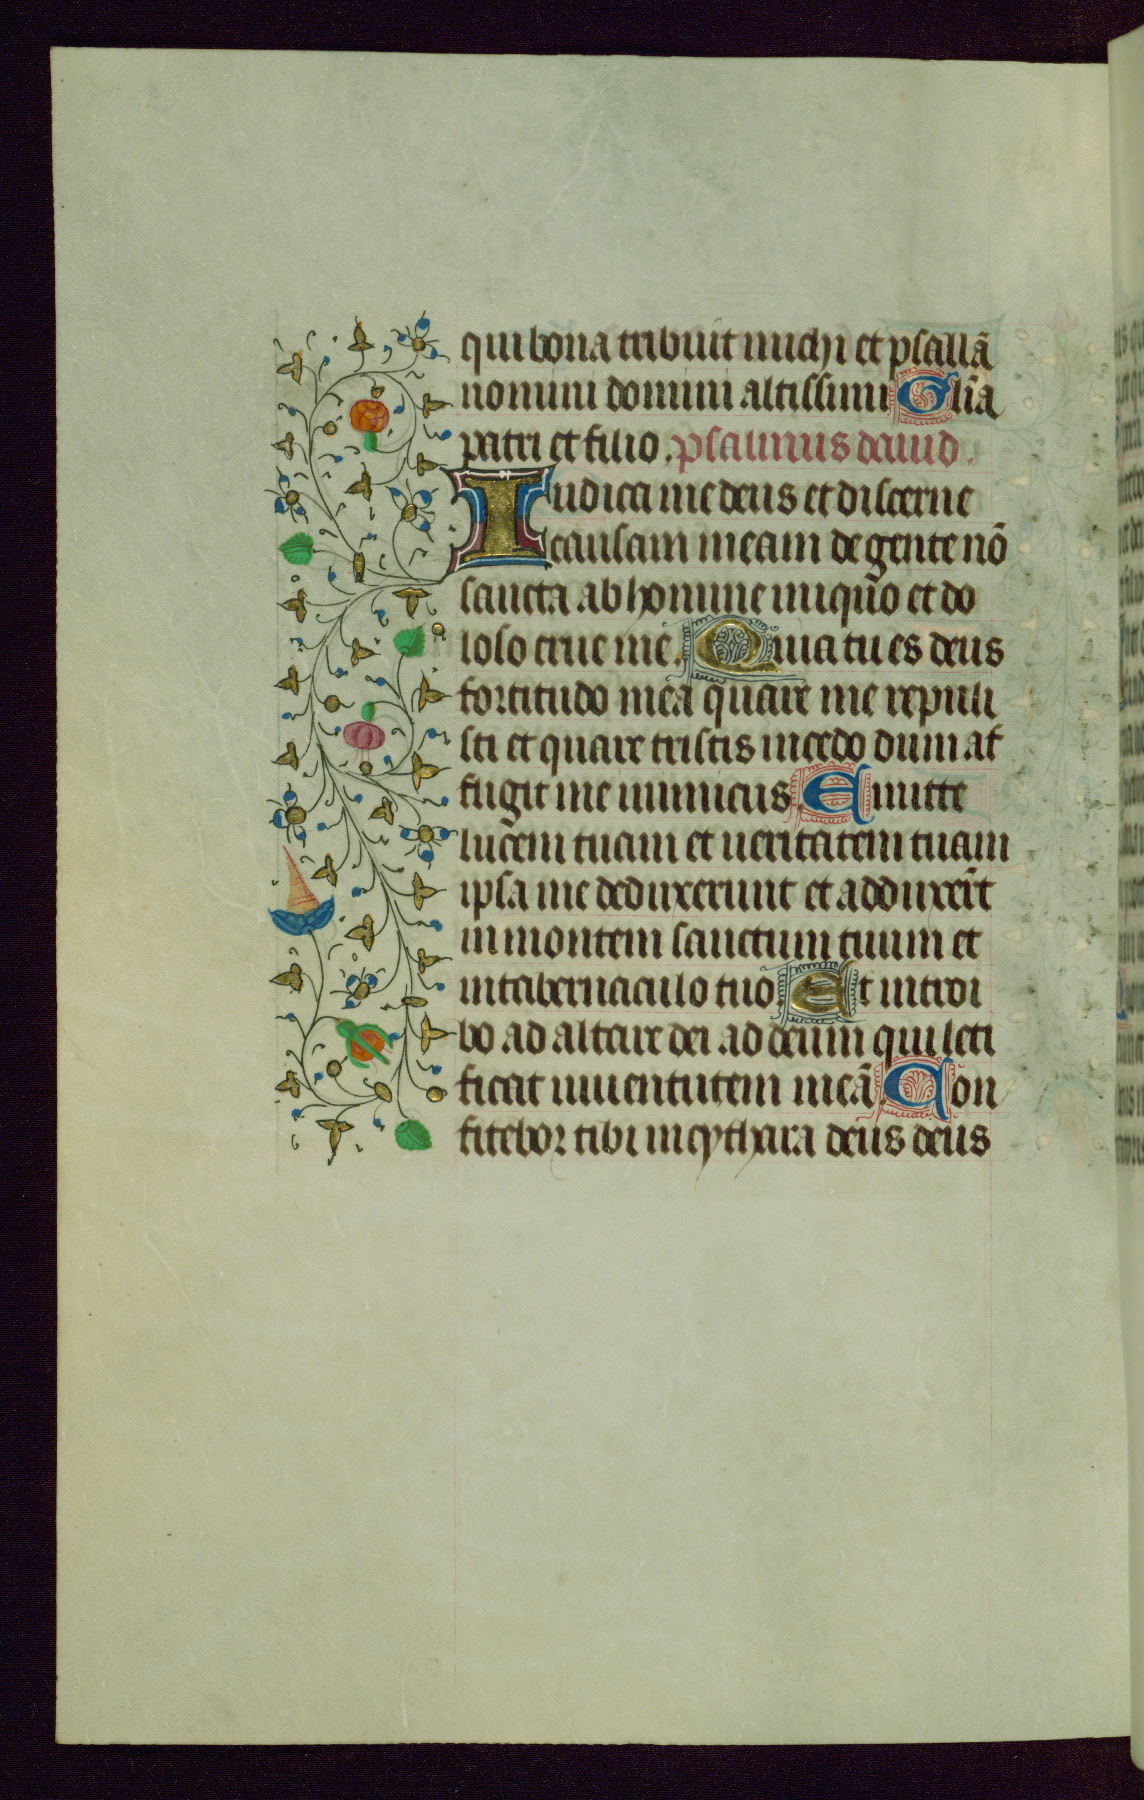 qui bona tribuit michi et psallā
nomini domini altissimi Gl̄ia
patri et filio. psalmus dauid.
Iudica me deus et discerne
causam meam de gente nō
sancta ab homine iniquo et do
loso erue me. Quia tu es deus
fortitudo mea quare me repuli
sti et quare tristis incedo dum af
fligit me inimicus. Emitte
lucem tuam et ueritatem tuam
ipsa me deduxerunt et adduxer̄t
in montem sanctum tuum et
in tabernacula tuo. Et introi
bo ad altare dei ad deum qui leti
ficat iuuentutem meā. Con
fitebor tibi in cythara deus deus